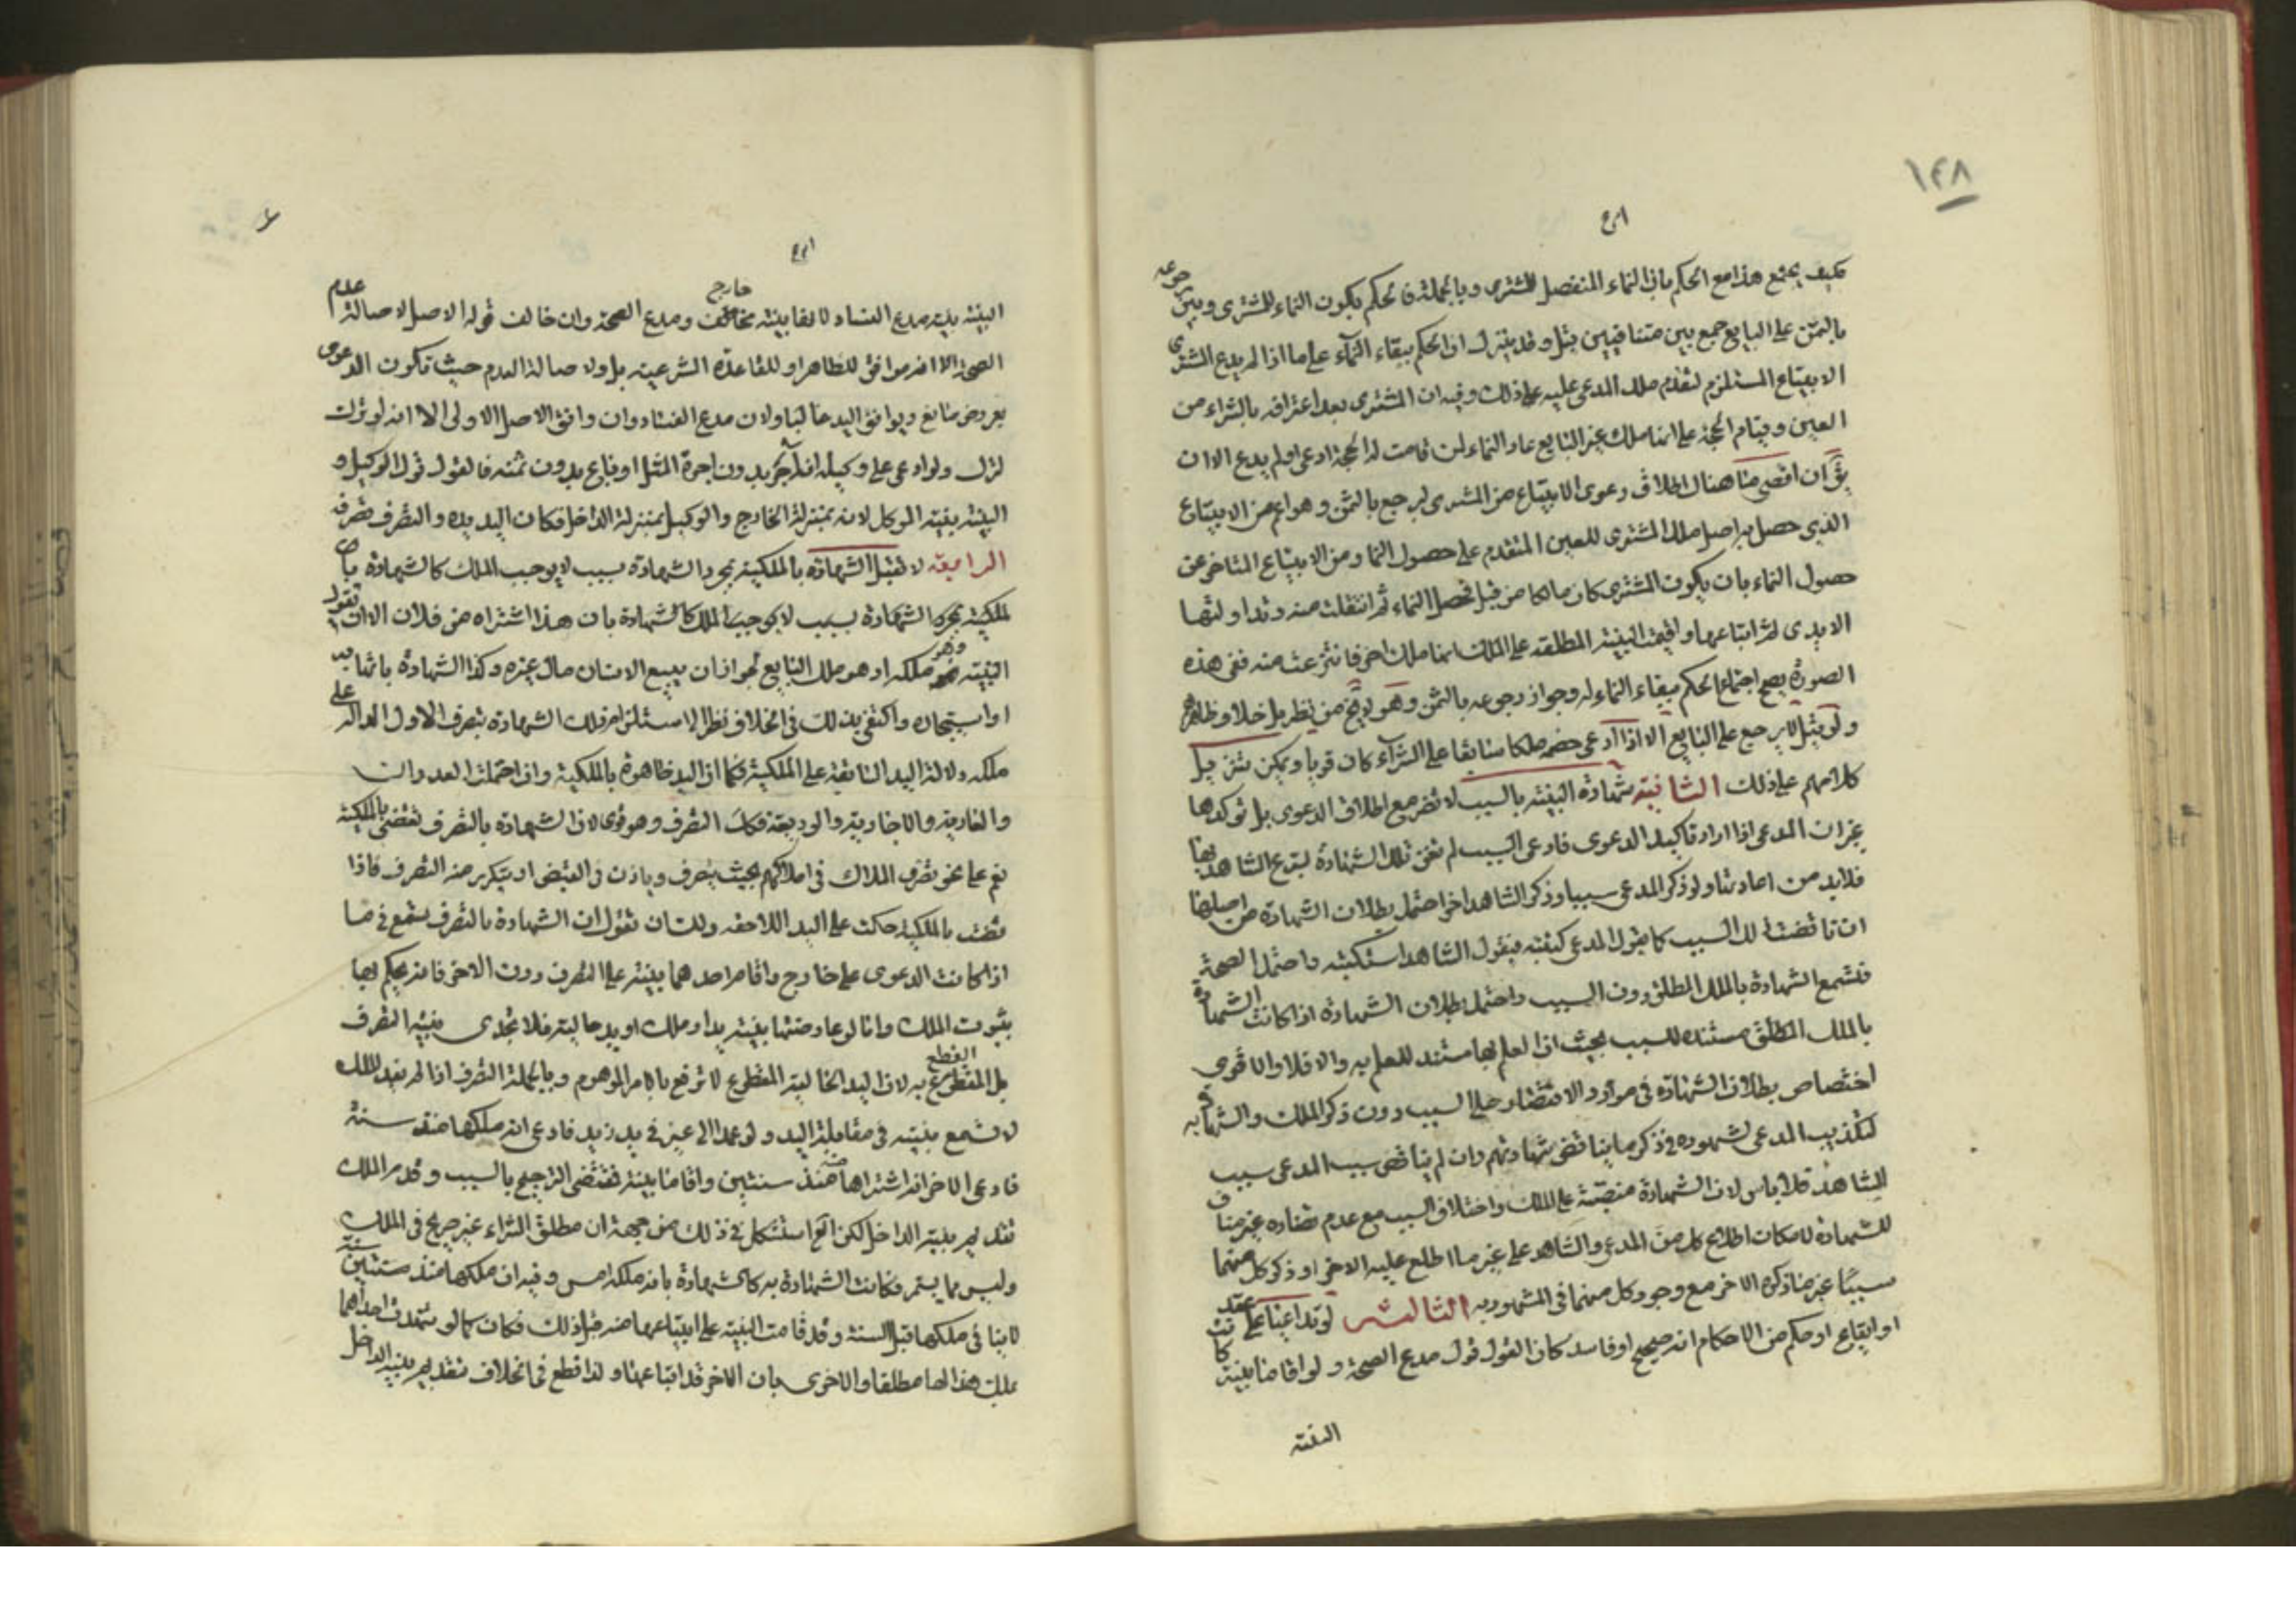 ١٤٨
فكيف يجتمع هذا مع الحكم بان النماء المنفصل للمشتري وبالجملة فالحكم بكون النماء للمشتري وبين رجوعه
بالثمن على البايع جمع بين متنافيين وقد ينزل ان الحكم ببقاء النماء على ما اذا لم يدع المشتري
الابتياع المستلزم لتقدم ملك المدعى عليه على ذلك وفيه ان المشتري بعد اعترافه بالشراء من
العين وقيام الحجة على انها ملك غير البايع عاد النماء لمن قامت له الحجة ادعى او لم يدع الا ان
يق ان اقصى ما هناك اطلاق دعوى الابتياع من المشتري ليرجع بالثمن وهو اعم من الابتياع
الذي حصل به اصل ملك المشتري للعين المتقدم على حصول النما ومن الابتياع المتاخر عن
حصول النماء بان يكون المشتري كان مالكا من قبل فحصل النماء ثم انتقلت منه وتداولتها
الايدي ثم ابتاعها واقيمت البينة المطلقة على المالك انها ملك اخر فانتزعت منه ففي هذه
الصورة يصح اجتماع الحكم ببقاء النماء له وجواز رجوعه بالثمن وهو لا يخ من نظر بل خلاف ظاهرهم
ولو قيل لا يرجع على البايع الا اذا ادعى خصمه ملكا سابقا على الشراء كان قويا ويمكن تنزيل
كلامهم على ذلك الثانية شهادة البينة بالسبب لا تضر مع اطلاق الدعوى بل توكدها
غير ان المدعي اذا اراد تاكيد الدعوى فادعى السبب لم تغن تلك الشهادة لتبرع الشاهد بها
فلا بد من اعادتها ولو ذكر المدعي سببا وذكر الشاهد اخر احتمل بطلان الشهادة من اصلها
ان تناقضت السبب كما يقول المدعي فيقول الشاهد واحتمل الصحة
فتسمع الشهادة بالملك المطلق دون السبب واحتمل بطلان الشهادة اذا كانت الشهادة
بالملك المطلق مستنده للسبب بحيث ان العلم بها مستند للعلم به والا فلا والاقوى
اختصاص بطلان الشهادة في موارد الاقتصار على السبب دون ذكر الملك والشهادة به
لتكذيب المدعي لشهوده في ذكر ما يناقض شهادتهم وان لم يناقض سبب المدعي سبب
الشاهد فلا باس لان الشهادة منصبة على الملك واختلاف السبب مع عدم تضاده غير مناف
للشهادة لامكان اطلاع كل من المدعي والشاهد على غير ما اطلع عليه الاخر او ذكر كل منهما
سببا غير ما ذكره الاخر مع وجود كل منهما في المشهود به الثالثة لو تداعيا على عقد
او ايقاع او حكم من الاحكام انه صحيح او فاسد كان القول قول مدع الصحة ولو اقاما بينة كانت
البينة
البينة بينة مدع الفساد لانها بينة خارج ومدع الصحة وان خالف قوله الاصل لاصالة عدم
الصحة الا انه موافق للظاهر او للقاعدة الشرعية بل ولاصالة العدم حيث تكون الدعوى
بعروض مانع ويوافق اليد غالبا ولان مدع الفساد وان وافق الاصل الاولى الا انه لو ترك
لترك ولو ادعى على وكيله انه آجر بدون اجرة المثل او باع بدون ثمنه فالقول قول الوكيل و
البينة بينة الموكل لانه بمنزلة الخارج والوكيل بمنزلة الداخل فكان اليد يده والتصرف تصرفه
الرابعة لا تقبل الشهادة بالملكية بمجرد الشهادة بسبب لا يوجب الملك كالشهادة با
لملكية بمجرد الشهادة بسبب لا يوجب الملك كالشهادة بان هذا اشتراه من فلان الا ان تقول
البينة وهو ملكه او هو ملك البايع لجواز ان يبيع الانسان مال غيره وكذا الشهادة بانها بيده
او استيجاره واكتفى بذلك في الخلاف نظرا الى استلزام تلك الشهادة بتصرف الاول الدال على
ملكه دلالة اليد السابقة على الملكية فكما ان اليد ظاهرة بالملكية وان احتملت العدوان
والعارية والاجارية والوديعة فكذا التصرف وهو قوي لان الشهادة بالتصرف تقضي بالملكية
نعم على نحو تصرف الملاك في املاكهم بحيث يتصرف وياذن في القبض او يتكرر منه التصرف فاذا
قضت بالملكية حكمت على اليد اللاحقة ولك ان تقول ان الشهادة بالتصرف يسمع في ما
اذا كانت الدعوى على خارج واقام احدهما بينة على التصرف دون الاخر فانه يحكم بها
بثبوت الملك واما لو عارضتها بينة يد او ملك او يد حالية فلا تجدي بينة التصرف
بل القطع به لان اليد الحالية المقطوع لا ترفع بالامر الموهوم وبالجملة التصرف اذا لم يفد الملك
لا تسمع بينته في مقابلة اليد ولو عمد الى عين في يد زيد فادعى انه ملكها منذ سنة
فادعى الاخر انه اشتراها منه منذ سنتين واقاما بينة فتقتضي الترجيح بالسبب وقدم الملك
تقديم بينة الداخل لكن الخ استشكل في ذلك من جهة ان مطلق الشراء غير صريح في الملك
وليس مما يستمر فكانت الشهادة به كالشهادة بانه ملكه امس وفيه ان ملكها منذ سنة
لا ينافي ملكها قبل السنة وقد قامت البينة على ابتياعها منه قبل ذلك فكان كما لو شهدت احداهما
بملك هذا لها مطلقا والاخرى بان الاخر قد ابتاعها ولذا قطع في الخلاف بتقديم بينة الداخل